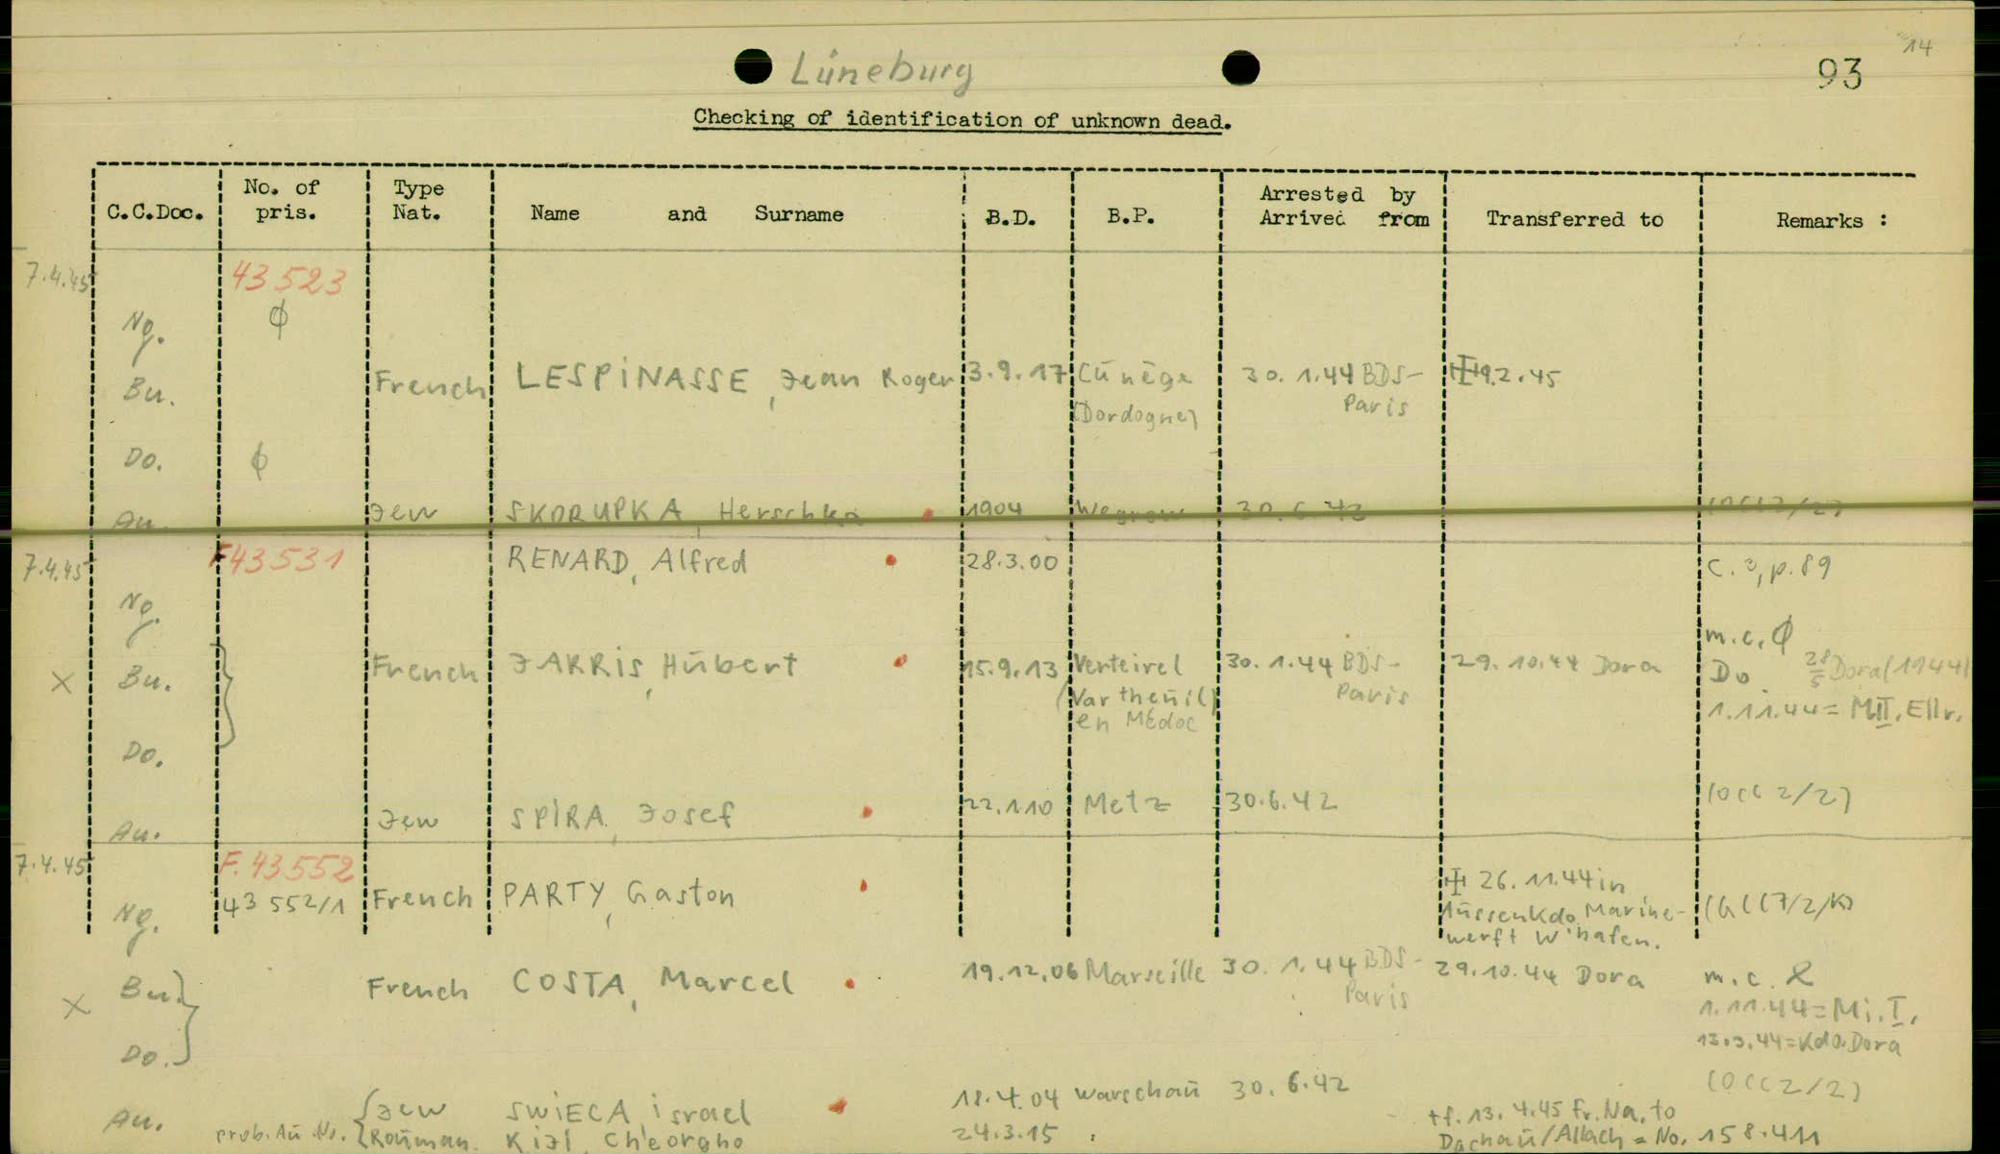 14
Lüneburg
93
Checking of identification of unknown dead.
C.C.Doc. No. of pris. Type Nat. Name and Surname B.D. B.P. Arrested by Arrived from Transferred to Remarks :
7.4.45 43523
Ng. ϕ
Bu. French LESPINASSE, Jean Roger 3.9.17 Cünège 30.1.44 BDS- 19.2.45
(Dordogne) Paris
Do. ϕ
Au. Jew SKORUPKA, Herschka 1904 Wegrow 30.6.42
7.4.45 F43531 RENARD, Alfred 28.3.00 p. 89
Ng.
m.c. ϕ
X Bu. French JARRIS, Hübert 15.9.13 Verteirel 30.1.44 BDS- 29.10.44 Dora Do. 28/5 Dora (1944)
(Vartheüil) Paris 1.11.44 = MII, Ellr.
en Médoc
Do.
Au. Jew SPIRA, Josef 22.1.10 Metz 30.6.42 (OCC 2/2)
7.4.45 F.43552
Ng. 43552/1 French PARTY, Gaston 26.11.44 in
Aüssenkdo. Marine-
werft W'hafen.
X Bu. French COSTA, Marcel 19.12.06 Marseille 30.1.44 BDS- 29.10.44 Dora m.c.
Paris 1.11.44 = Mi. I,
Do. = Kdo. Dora
Au. Jew SWIECA, Israel 18.4.04 Warschaü 30.6.42 (OCC 2/2)
prob. Aü. No. Roüman. Kizl, Cheorgho 24.3.15 tf. 13.4.45 fr. Na. to
Dachaü/Allach = No. 158.411